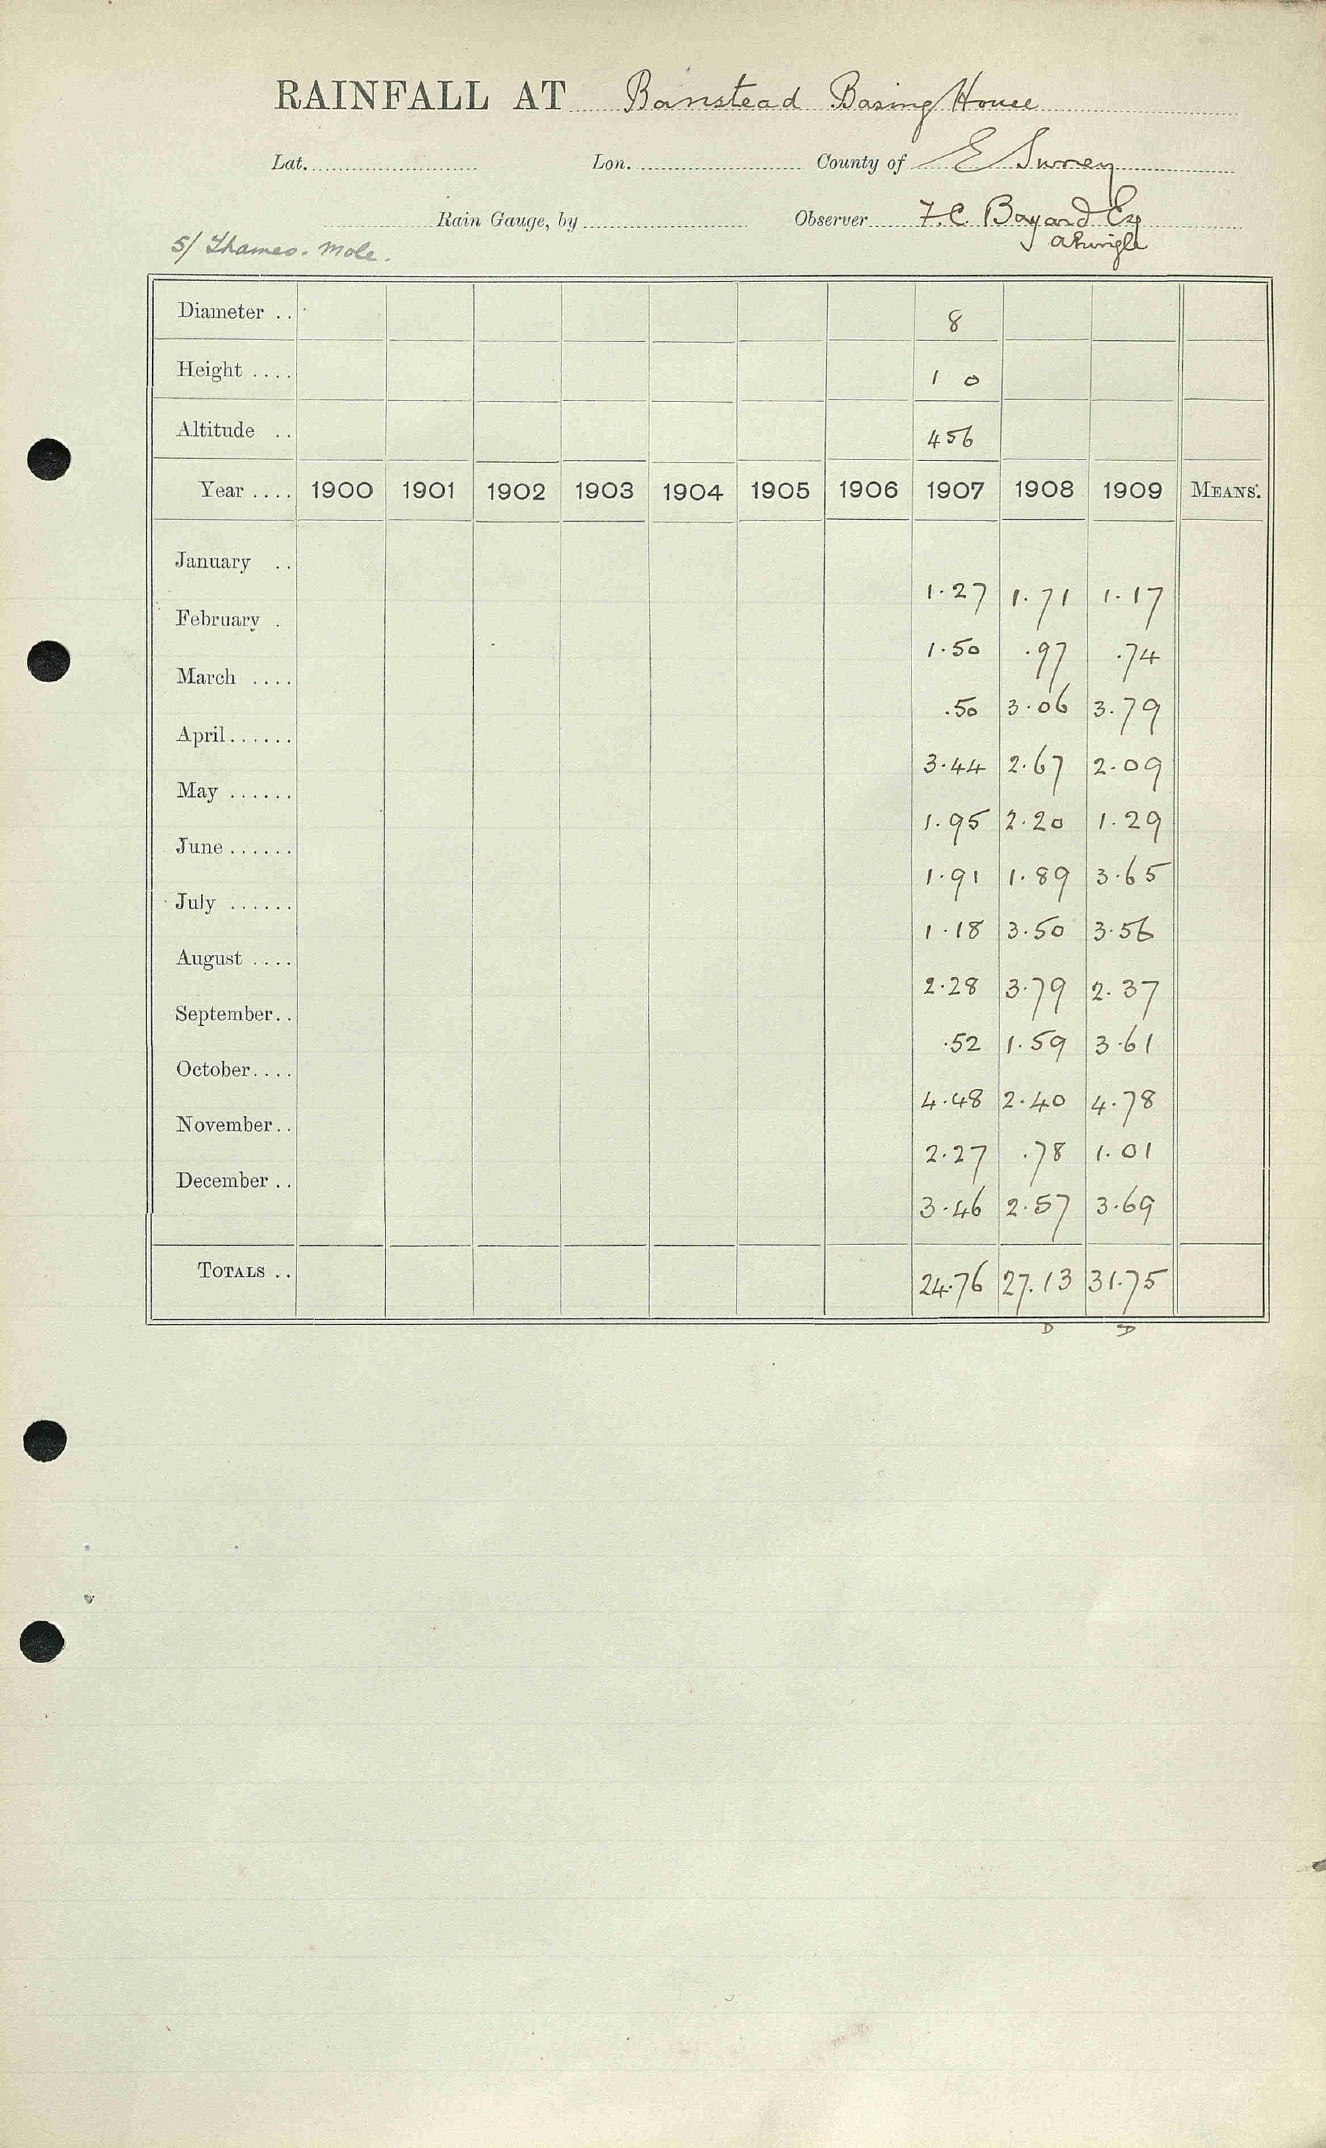 RAINFALL AT Banstead Basing House
Lat. Lon. County of E Surrey
Rain Gauge, by Observer F.C. Bayard Esq
5/ Thames. Mole.
Diameter .. 8
Height .... 1 0
Altitude .. 456
Year .... 1900 1901 1902 1903 1904 1905 1906 1907 1908 1909 MEANS.
January .. 1.27 1.71 1.17
February . 1.50 .97 .74
March .... .50 3.06 3.79
April...... 3.44 2.67 2.09
May ...... 1.95 2.20 1.29
June...... 1.91 1.89 3.65
July ...... 1.18 3.50 3.56
August .... 2.28 3.79 2.37
September.. .52 1.59 3.61
October.... 4.48 2.40 4.78
November.. 2.27 .78 1.01
December .. 3.46 2.57 3.69
TOTALS .. 24.76 27.13 31.75
D D